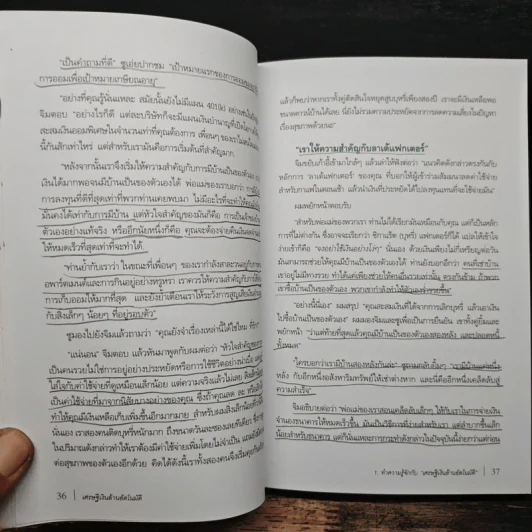 "เป็นคำถามที่ดี" ซูเอ่ยปากชม "เป้าหมายแรกของการออม
การออมเพื่อเป้าหมายเกษียณอายุ"
"อย่างที่คุณรู้นั่นแหละ สมัยนั้นยังไม่มีแผน 401(k)
จิมตอบ "อย่างไรก็ดี แต่ละบริษัทก็จะมีแผนเงินบำนาญที่เปิดโอกาส
สะสมเงินออมพิเศษในจำนวนเท่าที่คุณต้องการ เพื่อนๆ ของเรา
นี้กันสักเท่าไหร่ แต่สำหรับเรามันคือการเริ่มต้นที่สำคัญมาก
"หลังจากนั้นเราจึงเริ่มให้ความสำคัญกับการมีบ้านเป็นของตัวเอง
เงินได้มากพอจนมีบ้านเป็นของตัวเองได้ พ่อแม่ของเราบอกว่า
การลงทุนที่ดีที่สุดเท่าที่พวกท่านเคยพบมา ไม่มีอะไรที่จะทำให้
มั่นคงได้เท่ากับการมีบ้าน แต่หัวใจสำคัญของมันก็คือ การเป็นเจ้าของ
ตัวเองอย่างแท้จริง หรืออีกนัยหนึ่งก็คือ คุณจะต้องจ่ายคืนเงิน
ให้หมดเร็วที่สุดเท่าที่จะทำได้.
"ท่านย้ำกับเราว่า ในขณะที่เพื่อนๆ ของเรากำลัง
อพาร์ตเมนต์และการกินอยู่อย่างหรูหรา เราควรให้ความสำคัญกับ
การเก็บออมให้มากที่สุด และยังย้ำเตือนเราให้ระวังการสูญเสียเงิน
กับสิ่งเล็กๆ น้อยๆ ที่อยู่รอบตัว"
ซูมองไปยังจิมแล้วถามว่า "คุณยังจำเรื่องเหล่านี้ได้ใช่ไหม ที่รัก"
"แน่นอน" จิมตอบ แล้วหันมาพูดกับผมต่อว่า "หัวใจสำคัญ
เป็นคนรวยไม่ใช่การอยู่อย่างประหยัดหรือการใช้ชีวิตอย่างน่าเบื่อ
ใส่ใจกับค่าใช้จ่ายที่ดูเหมือนเล็กน้อย แต่ความจริงแล้วไม่เลย
เป็นค่าใช้จ่ายที่มาจากนิสัยบางอย่างของคุณ ซึ่งถ้าคุณลด ละ
ทำให้คุณมีเงินเหลือเก็บเพิ่มขึ้นอีกมากมาย สำหรับผมสิ่งเล็กน้อย
นั่นเอง เราสองคนติดบุหรี่หนักมาก ถึงขนาดวันละซองเลยทีเดียว
ในปริมาณดังกล่าวทำให้เราต้องมีค่าใช้จ่ายเพิ่มโดยไม่จำเป็น
ต่อสุขภาพของตัวเองอีกด้วย คิดได้ดังนี้เราทั้งสองคนจึง
36 | เศรษฐีเงินล้านอัตโนมัติ
แล้วก็พบว่าหากเราทั้งคู่ตัดสินใจหยุดสูบบุหรี่เพียงสองปี เราจะมีเงินเหลือพอ
ขนาดดาวน์บ้านได้เลย นี่ยังไม่รวมความประหยัดจากการลดความเสี่ยงในปัญหา
เรื่องสุขภาพด้วยนะ"
"เราให้ความสำคัญกับลาเต้แฟกเตอร์"
จิมขยับเก้าอี้เข้ามาใกล้ๆ แล้วเล่าให้ฟังต่อว่า "แนวคิดดังกล่าวตรงกันกับ
หลักการ "ลาเต้แฟกเตอร์" ของคุณ ที่บอกให้ผู้เข้าร่วมสัมมนาลดค่าใช้จ่าย
สำหรับกาแฟในตอนเช้า แล้วนำเงินที่ประหยัดได้ไปลงทุนแทนที่จะใช้จ่ายมัน"
ผมพยักหน้าตอบรับ
"สำหรับพ่อแม่ของพวกเรา ท่านไม่ได้เรียกมันเหมือนกับคุณ แต่ก็เป็นหลัก
การที่ไม่ต่างกัน ซึ่งอาจจะเรียกว่า ซิกาแร็ต (บุหรี่) แฟกเตอร์ก็ได้ แปลให้เข้าใจ
ง่ายเข้าก็คือ "จงอย่าใช้เงินอย่างโง่ๆ" นั่นเอง ด้วยเงินเพียงไม่กี่เหรียญต่อวัน
มันสามารถช่วยให้คุณมีบ้านเป็นของตัวเองได้ ท่านยังบอกอีกว่า คนที่เช่าบ้าน
เขาอยู่ไม่มีทางรวย ทำได้แค่เพียงช่วยให้คนอื่นรวยเท่านั้น ตรงกันข้าม ถ้าพวก
เราซื้อบ้านเป็นของตัวเอง พวกเรากำลังทำให้ตัวเองร่ำรวยขึ้น"
"อย่างนี้นี่เอง" ผมสรุป "คุณจะสมเงินที่ได้จากการเลิกบุหรี่ แล้วเอาเงิน
ไปซื้อบ้านเป็นของตัวเอง" ผมมองจิมและซูเพื่อเป็นการยืนยัน เราทั้งคู่ยิ้มและ
พยักหน้า "ว่าแต่ท้ายที่สุดแล้วคุณมีบ้านเป็นของตัวเองสองหลัง และปลอดหนี้
ทั้งหมด"
"ใครบอกว่าเรามีบ้านสองหลังกันล่ะ" ซูถามกลับยิ้มๆ "เรามีบ้านแค่หนึ่งหลัง
กับอีกหนึ่งอสังหาริมทรัพย์ให้เช่าต่างหาก และนี่คืออีกหนึ่งเคล็ดลับสู่
ความสำเร็จ"
จิมอธิบายต่อว่า "พ่อแม่ของเราสอนเคล็ดลับเล็กๆ ให้กับเราในการจ่ายเงิน
จำนองธนาคารให้หมดเร็วขึ้น มันเป็นวิธีการที่ง่ายสำหรับเรา แต่ลำบากขึ้นเล็ก
น้อยสำหรับธนาคาร แต่ก็นั่นแหละการกระทำดังกล่าวในปัจจุบันนี้ง่ายกว่าแต่ก่อน
1. ทำความรู้จักกับ "เศรษฐีเงินล้านอัตโนมัติ" | 37